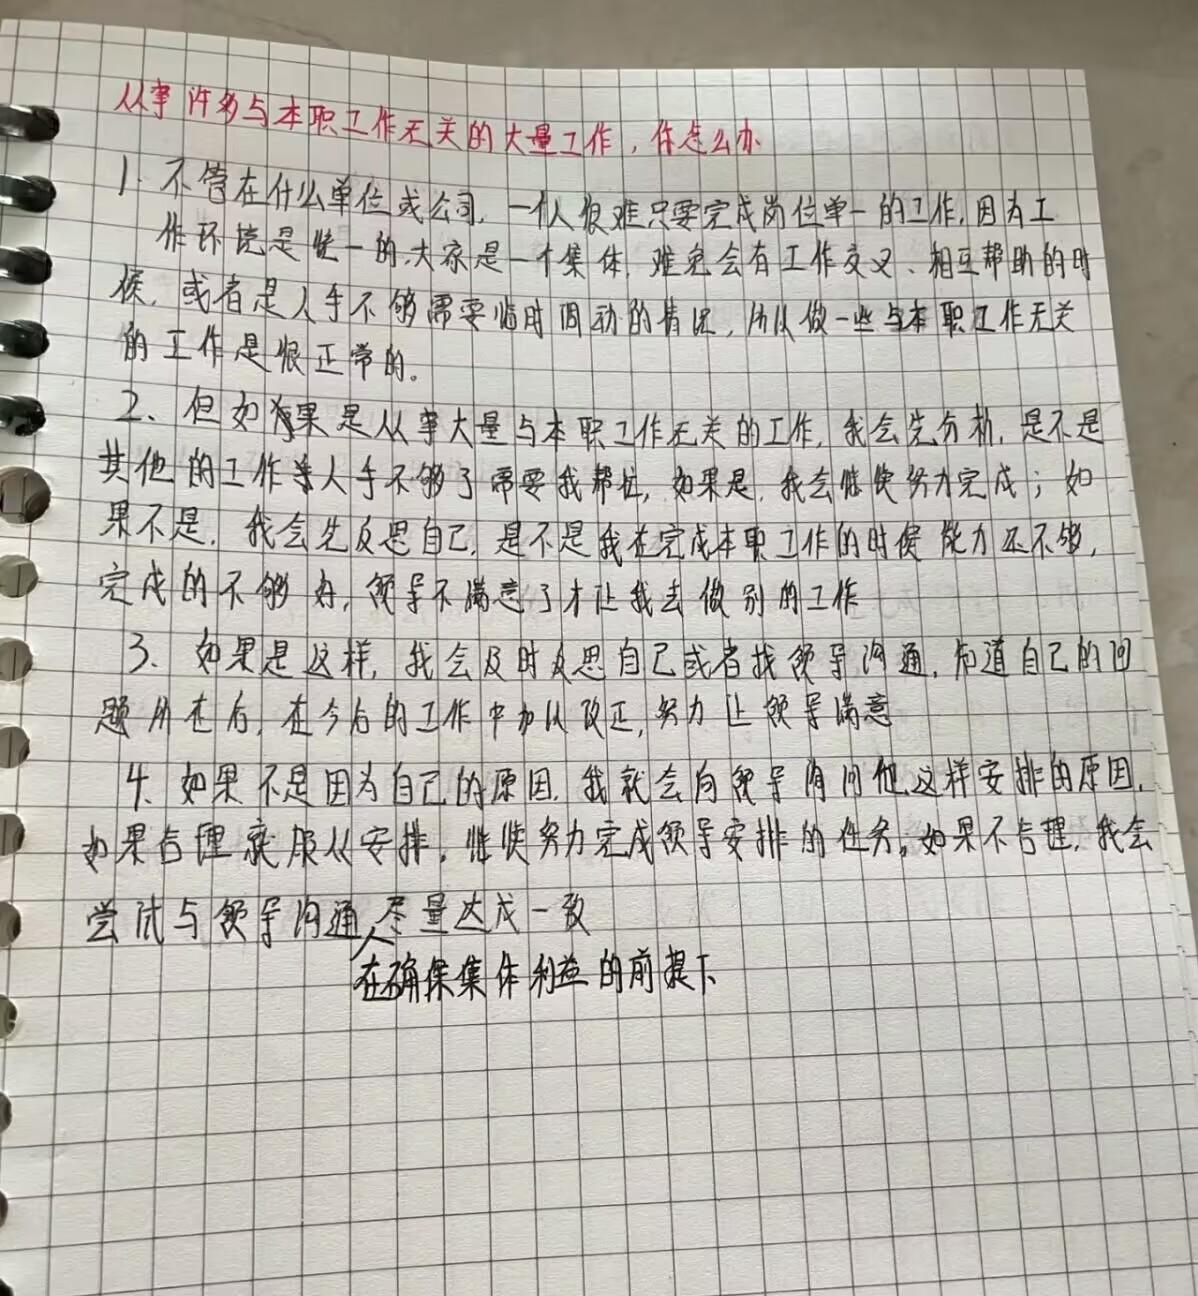 从事许多与本职工作无关的大量工作，你怎么办
1. 不管在什么单位或公司，一个人很难只要完成岗位单一的工作，因为工
作环境是统一的，大家是一个集体，难免会有工作交叉、相互帮助的时
候，或者是人手不够需要临时调动的情况，所以做一些与本职工作无关
的工作是很正常的。
2、但如果是从事大量与本职工作无关的工作，我会先分析，是不是
其他的工作人手不够了需要我帮忙，如果是，我会继续努力完成；如
果不是，我会先反思自己，是不是我在完成本职工作的时候能力还不够，
完成的不够好，领导不满意了才让我去做别的工作
3、如果是这样，我会及时反思自己或者找领导沟通，知道自己的问
题所在后，在今后的工作中加以改正，努力让领导满意
4、如果不是因为自己的原因，我就会向领导询问他这样安排的原因，
如果合理就服从安排，继续努力完成领导安排的任务。如果不合理，我会
尝试与领导沟通，尽量达成一致
在确保集体利益的前提下